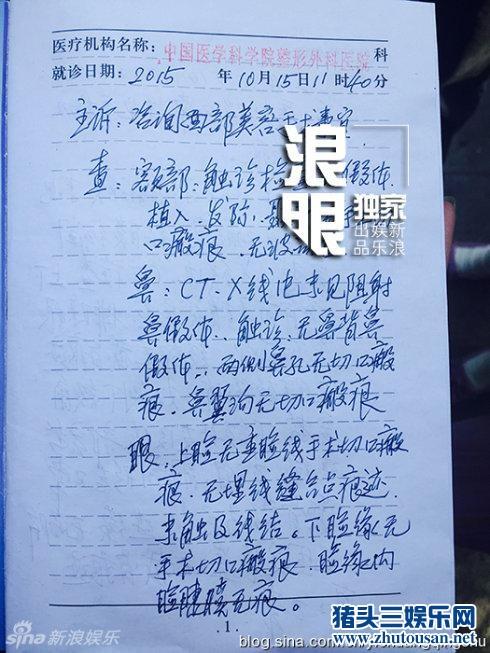 医疗机构名称：中国医学科学院整形外科医院 科
就诊日期：2015 年10月15日11时40分
主诉：咨询面部美容手术事宜
查：额部：触诊检 假体
植入．发际． 手
口瘢痕．无
鼻：CT、X线也未见阻射
鼻假体．触诊：无鼻背鼻
假体．两侧鼻孔无切口瘢
痕．鼻翼沟无切口瘢痕
眼．上睑无重睑线手术切口瘢
痕．无埋线缝合点痕迹．
未触及线结。下睑缘无
手术切口瘢痕．睑缘内
睑结膜无痕。
浪眼 独家
出娱新
品乐浪
1
sina新浪娱乐
blog.sina.com
猪头三娱乐网
http://www.zhutousan.net